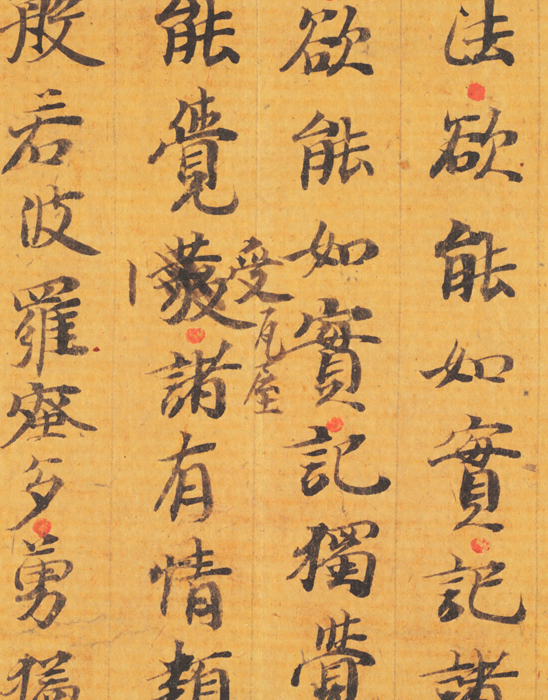 法欲能如實記諸
欲能如實記獨覺
受
瓦屋
能覺諸有情類
般若波羅蜜多勇猛